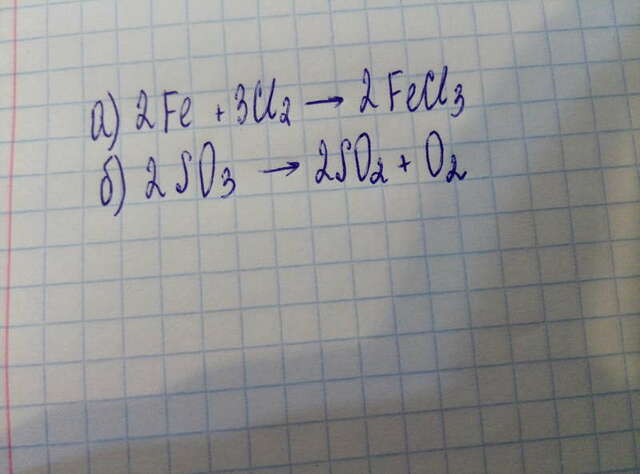 а) 2Fe + 3Cl2 → 2FeCl3
б) 2SO3 → 2SO2 + O2